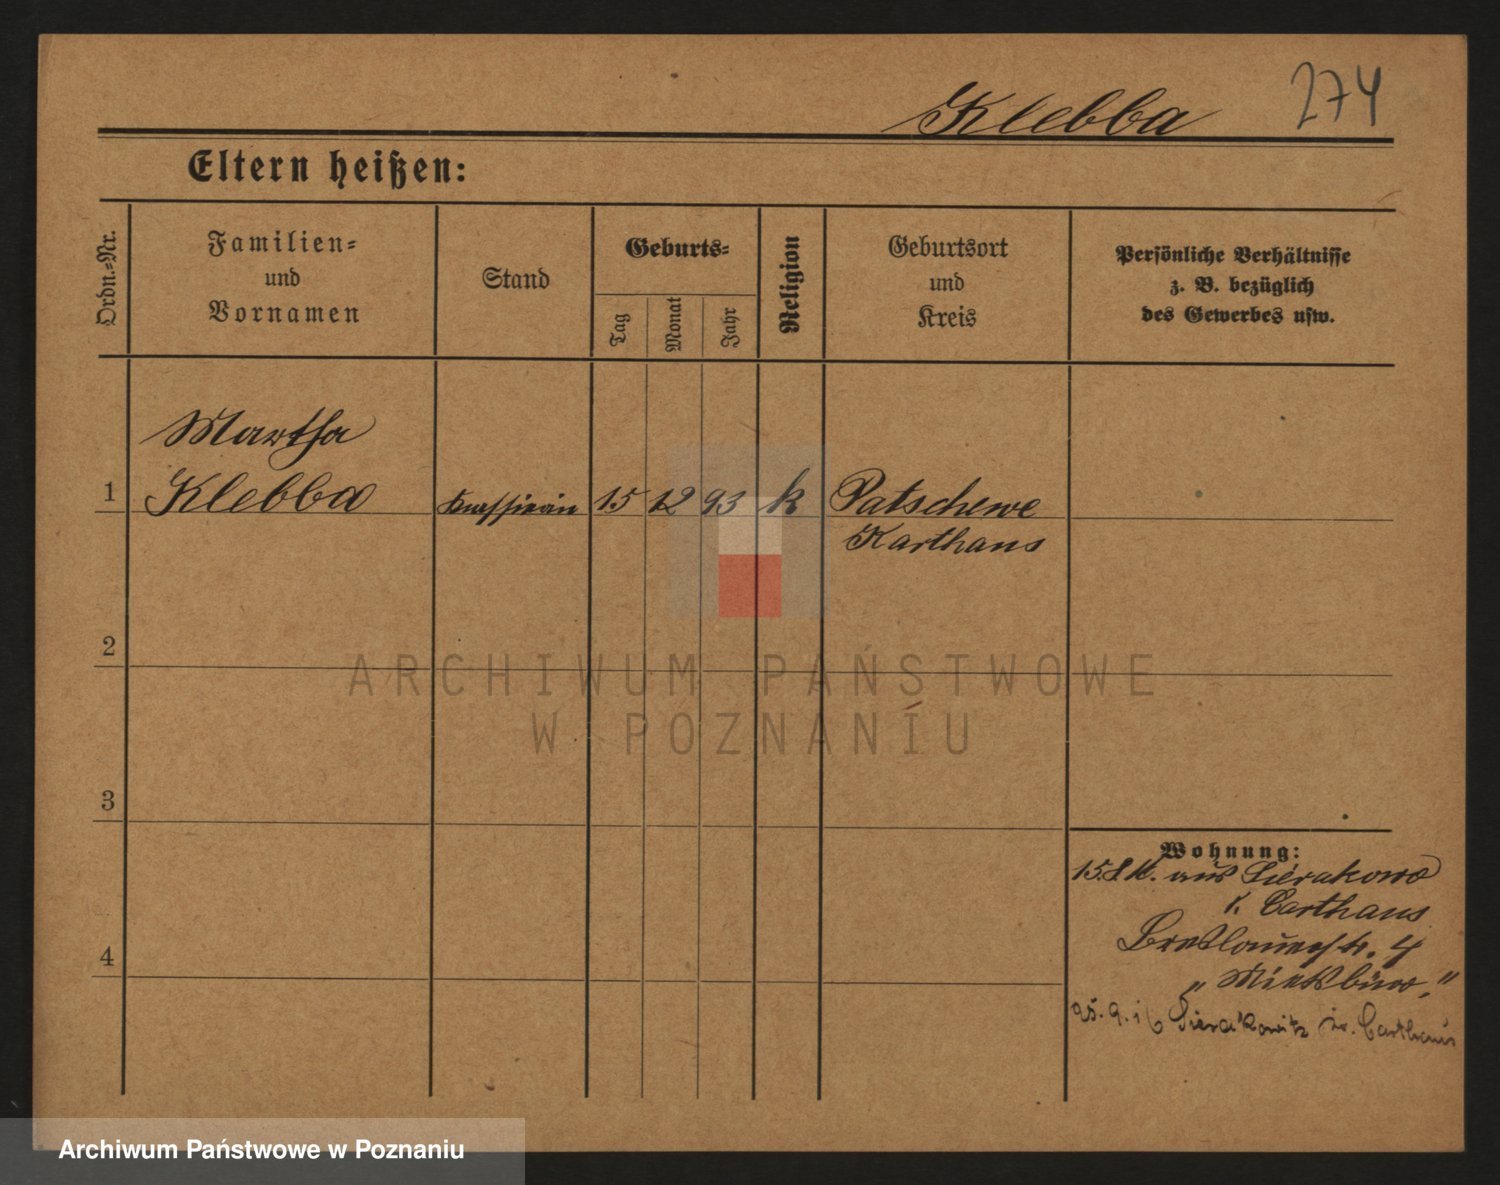 Klebba 274
Eltern heißen:
Ordn.-Nr.
Familien-
und
Vornamen
Stand
Geburts-
Tag
Monat
Jahr
Religion
Geburtsort
und
Kreis
Persönliche Verhältnisse
z. B. bezüglich
des Gewerbes usw.
Martha
1 Klebba 15 12 93 k Patschewe
Karthaus
2
3
4
Wohnung:
aus Sierakowo
Carthaus
Breslauerstr. 4
25. 9. 16 Sierakowitz Kr. Carthaus
ARCHIWUM PAŃSTWOWE
W POZNANIU
Archiwum Państwowe w Poznaniu